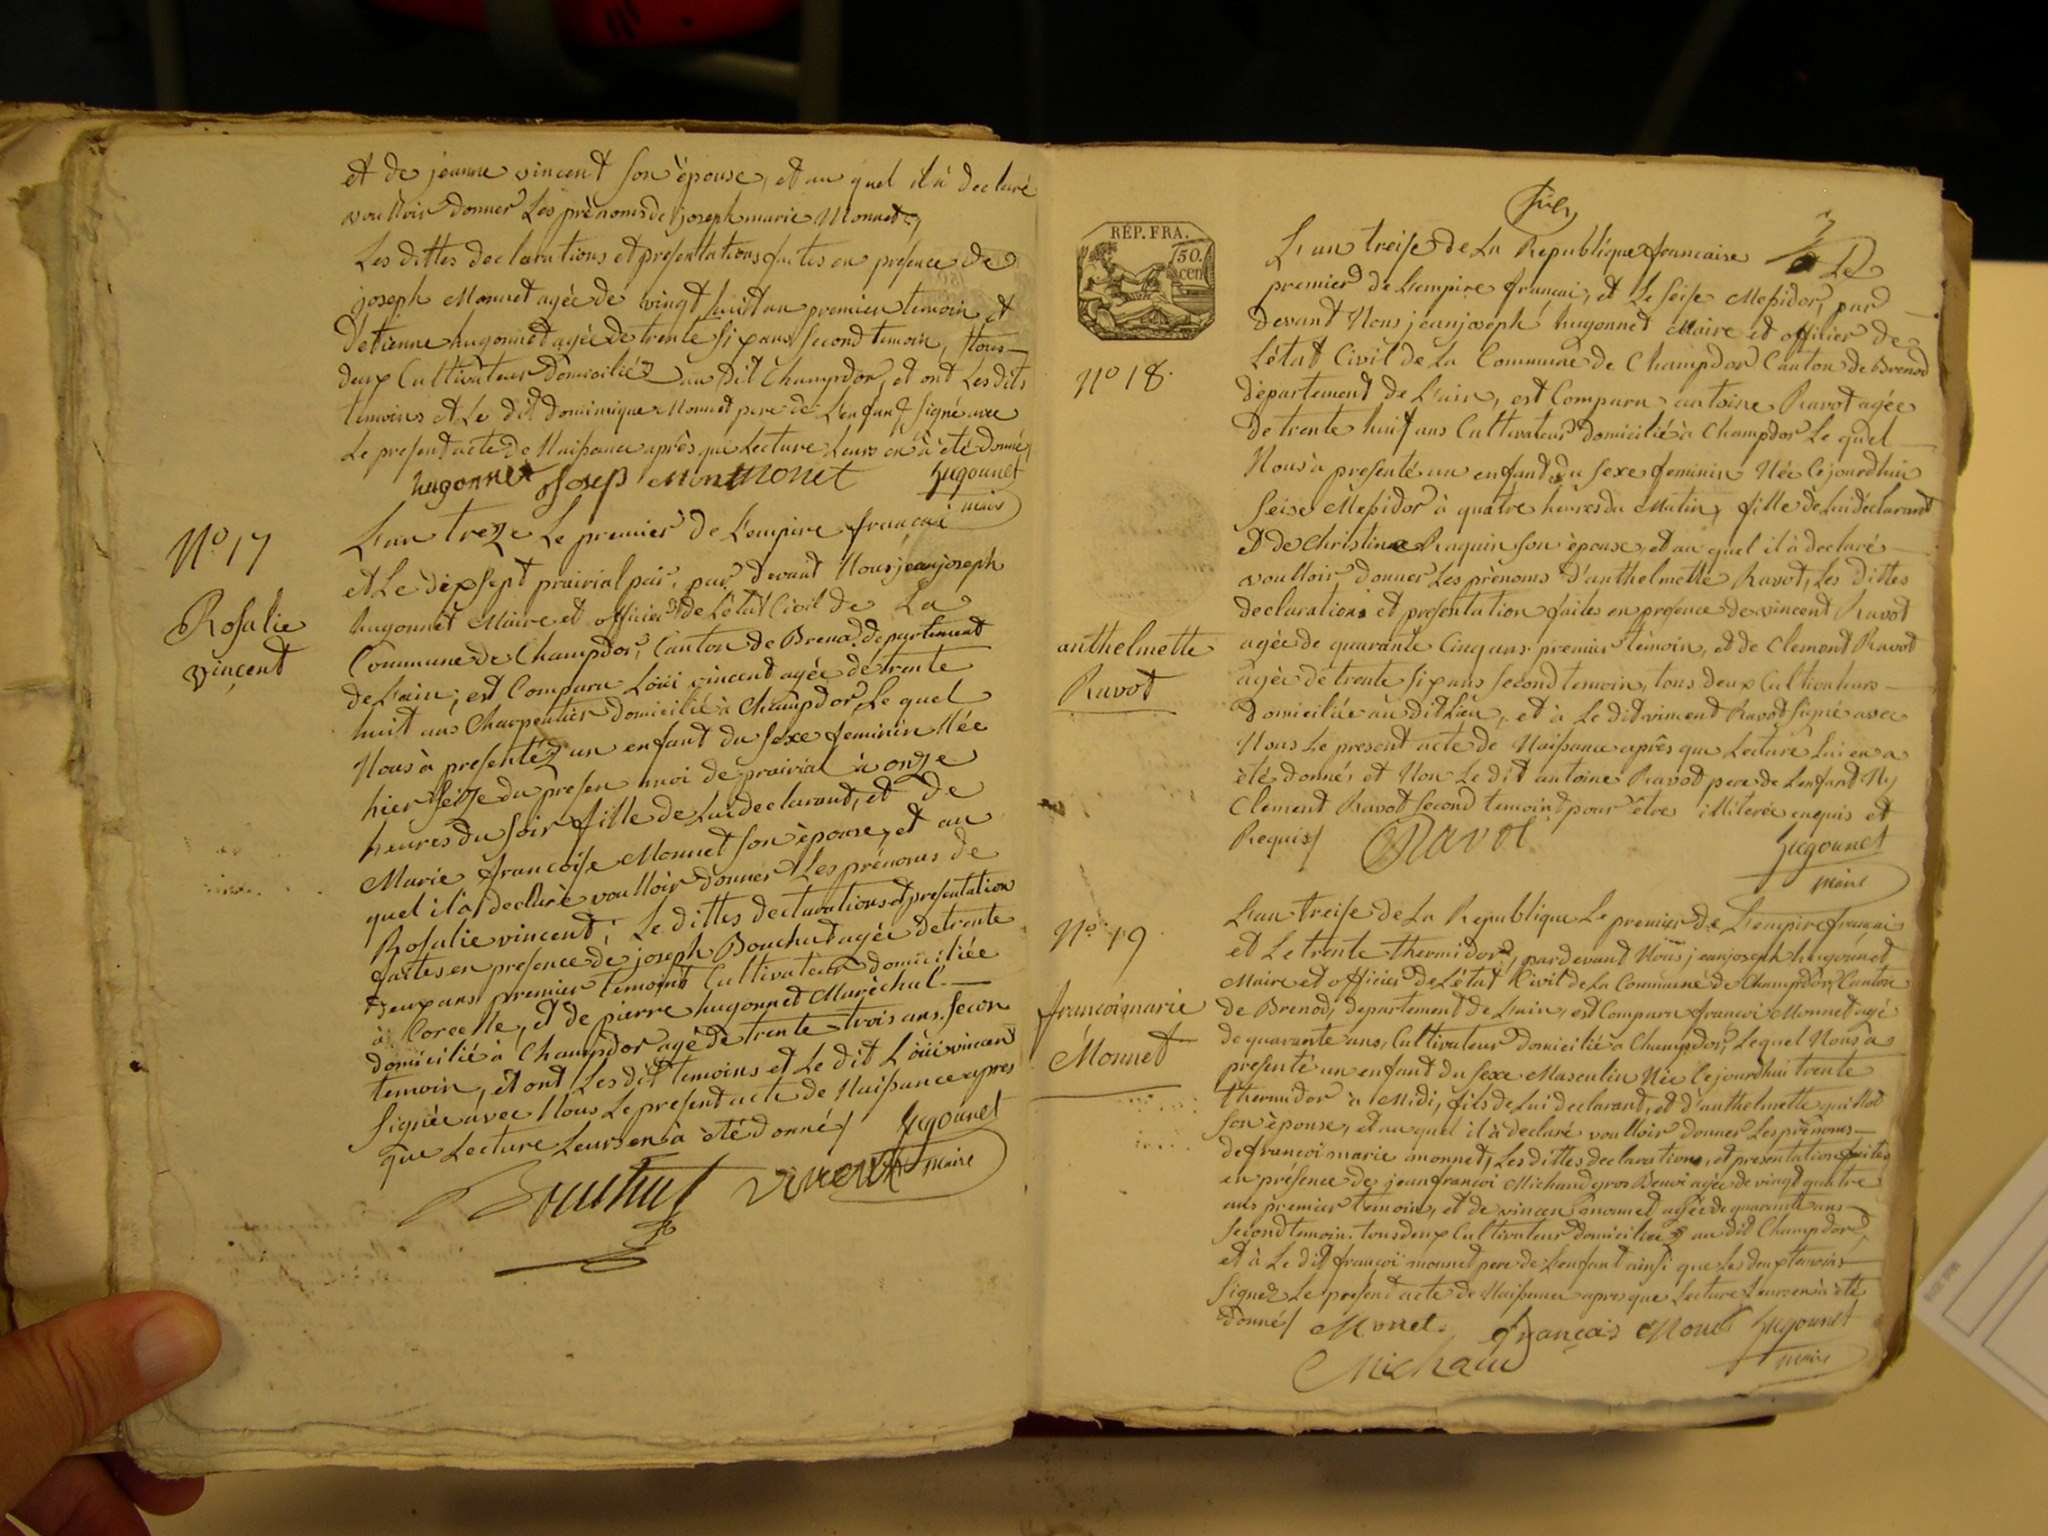 et de jeanne vincent son épouse, et au quel il à declaré
voulloir donner Les prénoms de joseph marie Monnet,
Les dittes declarations et presentations faites en presence de
joseph Monnet agée de vingt huit an premier temoin et
d'etienne hugonnet agée de trente six ans second temoin, tous
deux Cultivateur domiciliéz au dit Champdor, et ont Les dits
temoins et Le dit dominique Monnet pere de L'enfant signé avec
Le present acte de Naissance après que Lecture Leurs en à été donné,
hugonnet Joseph Monnet hugonnet
maire
N° 17
Rosalie
vincent
L'an treze Le premier de L'empire françai
et Le dixsept prairial par devant Nous jeanjoseph
hugonnet Maire et officier de L'état Civil de La
Commune de Champdor, Canton de Brenod departement
de L'ain, est Comparu Loüi vincent agée de trente
huit ans Charpentier domicilié à Champdor Le quel
Nous à presentéz un enfant du sexe feminin Née
hier seize du presen moi de prairial à onze
heures du soir fille de Lui declarant, et de
Marie françoise Monnet son épouse, et au
quel il à declaré voulloir donner Les prénoms de
Rosalie vincent, Le dittes declarations et presentation
faites en presence de joseph Bouchut agée de trente
deux ans premier temoins Cultivateur domiciliée
à Corcelle, et de pierre hugonnet Maréchal
domicilié à Champdor agé de trente trois ans secon
temoin, et ont Les dit temoins et Le dit Loüi vincen
signée avec Nous Le present acte de Naissance apres
que Lecture Leurs en à été donné/ hugonnet
Bouchut vincent maire
RÉP. FRA.
50.
cen
N° 18.
anthelmette
Ravot
L'an treise de La Republique francaise Le
premier de L'empire françai, et Le seise Messidor, par
devant Nous jeanjoseph hugonnet Maire et officier de
L'état Civil de La Commune de Champdor Canton de Brenod
département de L'ain, est Comparu antoine Ravot agée
de trente huit ans Cultivateur domicilié à Champdor Le quel
Nous à presenté un enfant du sexe feminin Née Cejourdhui
seise Messidor à quatre heures du Matin, fille de Lui déclarant
et de Christine Raquin son épouse, et au quel il à declaré
voulloir donner Les prénoms d'anthelmette Ravot, Les dittes
declarations et presentation faites en presence de vincent Ravot
agée de quarante Cinq ans premier témoin, et de Clement Ravot
agée de trente six ans second temoin, tous deux Cultivateurs
domiciliée au dit Lieu, et à Le dit vincent Ravot signé avec
Nous Le present acte de Naissance après que Lecture Lui en a
été donnés et Non Le dit antoine Ravot pere de L'enfant Ny
Clement Ravot second temoint pour être illiterée enquis et
Requis/ Ravot hugonnet
maire
N° 19
françoi marie
Monnet
L'an treise de La Republique Le premier de L'empire françai
et Le trente thermidor, par devant Nous jeanjoseph hugonnet
Maire et officier de L'état Civil de La Commune de Champdor, Canton
de Brenod, departement de L'ain, est Comparu françoi Monnet agé
de quarante ans, Cultivateur domicilié à Champdor, Lequel Nous à
presenté un enfant du sexe Masculin Née Cejourdhui trente
thermidor à Midi, fils de Lui declarant, et d'anthelmette
son épouse, et au quel il à declaré voulloir donner Les prénoms
de françoi marie monnet, Les dittes declarations, et presentation faites
en présence de jean françoi Michaud gros Benoi agée de vingt quatre
ans premier temoins, et de vincen monnet agée de quarante ans
second temoin. tous deux Cultivateur domiciliez au dit Champdor,
et à Le dit françoi monnet pere de L'enfant ainsi que Les deux temoins
signez Le present acte de Naissance apres que Lecture Leurs en à été
donné/ Monnet françois Monet hugonnet
Michaud maire